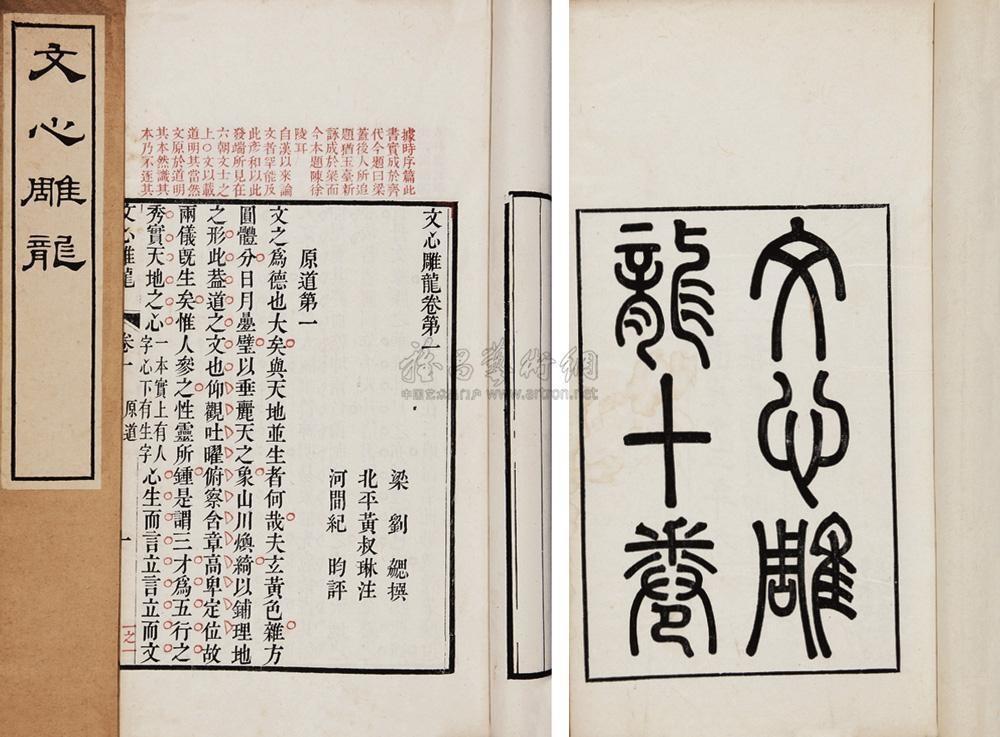 文心雕龍
據時序篇此
書實成於齊
代今題曰梁
蓋後人所追
題猶玉臺新
詠成於梁而
今本題陳徐
陵耳
自漢以來論
文者罕能及
此彥和以此
發端所見在
六朝文士之
上○文以載
道明其當然
文原於道明
其本然識其
本乃不逐其
文心雕龍卷第一
梁 劉 勰撰
北平黃叔琳注
河間紀 昀評
原道第一
文之爲德也大矣與天地並生者何哉夫玄黃色雜方
圓體分日月疊璧以垂麗天之象山川煥綺以鋪理地
之形此蓋道之文也仰觀吐曜俯察含章高卑定位故
兩儀既生矣惟人參之性靈所鍾是謂三才爲五行之
秀實天地之心一本實上有人字心下有生字心生而言立言立而文
文心雕龍 卷一 原道 一
一之一
文心雕
龍十卷
雅昌藝術網
中国艺术品门户 www.artron.net